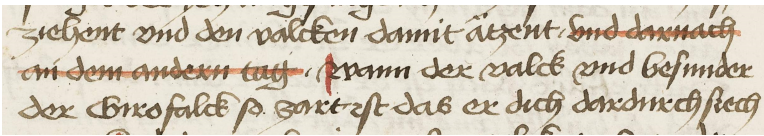 ziehent vnd den valcken damit åtzent · vnd darnach
an dem andern tag · wann der valck vnd besunder
der Girofalck so zart ist das er dich dardurch siech